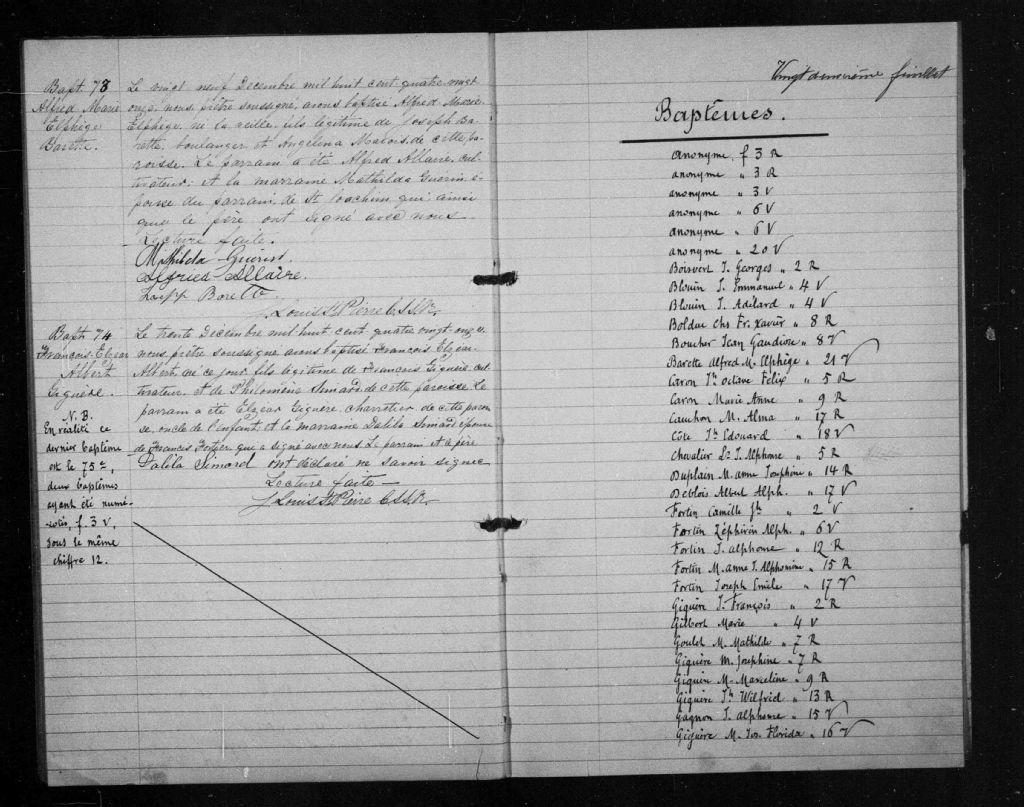 Bapt. 73
Alfred Marie
Elphège
Barette.
Le vingt neuf Decembre mil huit cent quatre vingt
onze, nous, prêtre soussigné, avons baptisé Alfred Marie
Elphège, né la veille, fils légitime de Joseph Ba-
rette, boulanger et Angelina Malois de cette pa-
roisse. Le parrain a été Alfred Allaire, cul-
tivateur; et la marraine Mathilda Guérin, é-
pouse du parrain, de St Joachim, qui, ainsi
que le père, ont signé avec nous
Lecture faite.
Mathilda Guérin.
Alfried Allaire.
Josepp Borette.
J Louis St Pierre C.SS.R.
Bapt. 74
François-Elzear
Albert
Giguère.
N.B.
En réalité ce
dernier baptême
est le 75e,
deux baptêmes
ayant été numé-
-rotés, f. 3 V,
sous le même
chiffre 12.
Le trente Decembre, mil huit cent quatre vingt-onze
nous, prêtre soussigné avons baptisé François Elzear
Albert, né ce jour, fils légitime de François Giguère, cul-
tivateur, et de Philomène Simard de cette paroisse. Le
parrain a été Elzear Giguère, charretier de cette parois
se, oncle de l'enfant, et la marraine Dalila Simard épouse
de Francis Fortier qui a signé avec nous. Le parrain et le père
Dalila Simord ont déclaré ne savoir signer
Lecture faite —
J Louis St Pierre C.SS.R.
Vingt deuxième feuillet
Baptêmes.
anonyme, f 3 R
anonyme " 3 R
anonyme " 3 V
anonyme " 6 V
anonyme " 6 V
anonyme " 20 V
Boisvert J. Georges " 2 R
Blouin J. Emmanuel " 4 V
Blouin J. Adélard " 4 V
Bolduc Chs Fr. Xavier " 8 R
Boucher Jean Gaudiose " 8 V
Barette Alfred M. Elphège " 21 V
Caron Jh Octave Félix " 5 R
Caron Marie Anne " 9 R
Cauchon M. Alma " 17 R
Côté Jh Edouard " 18 V
Chevalier Ls J. Alphonse " 5 R
Duplain M. Anne Josephine " 14 R
Deblois Albert Alph. " 17 V
Fortin Camille Jh " 2 V
Fortin Zéphirin Alph. " 6 V
Fortin J. Alphonse " 12 R
Fortin M. Anne J. Alphonsine " 15 R
Fortin Joseph Emile " 17 V
Giguère J. François " 2 R
Gilbert Marie " 4 V
Goulet M. Mathilde " 7 R
Giguère M. Josephine " 7 R
Giguère M. Marceline " 9 R
Giguère Jh Wilfrid " 13 R
Gagnon J. Alphonse " 15 V
Giguère M. Jos. Florida " 16 V